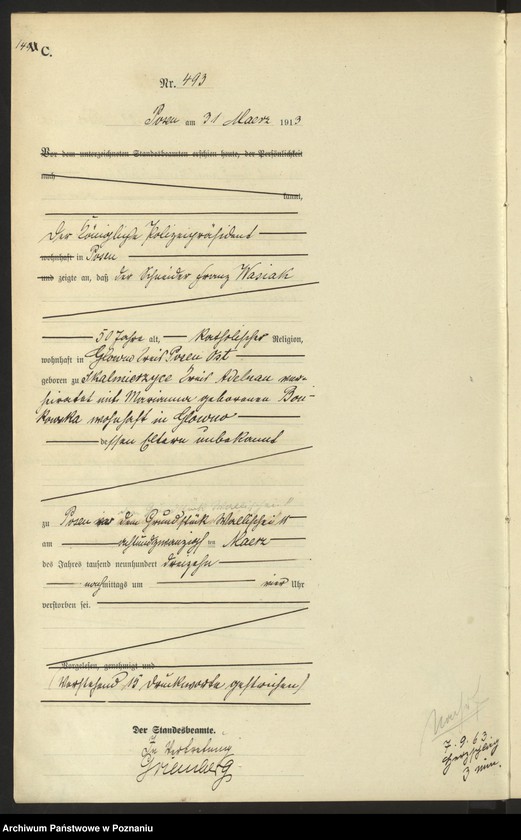 C.
Nr. 493
Posen am 31 Maerz 1913
Vor dem unterzeichneten Standesbeamten erschien heute, der Persönlichkeit
nach
kannt,
Der Königliche Polizeipräsident
wohnhaft in Posen
und zeigte an, daß der Schneider Franz Wasiak
50 Jahre alt, katholischer Religion,
wohnhaft in Glowno Kreis Posen Ost
geboren zu Skalmierzyce Kreis Adelnau ver-
heiratet mit Marianna geborenen
wohnhaft in Glowno
dessen Eltern unbekannt
zu Posen vor dem Grundstück Wallischei
am achtundzwanzigsten Maerz
des Jahres tausend neunhundert dreizehn
nachmittags um vier Uhr
verstorben sei.
Vorgelesen, genehmigt und
(Vorstehend 15 Druckworte gestrichen)
Der Standesbeamte.
In Vertretung
7.9.63
3 min.
Archiwum Państwowe w Poznaniu